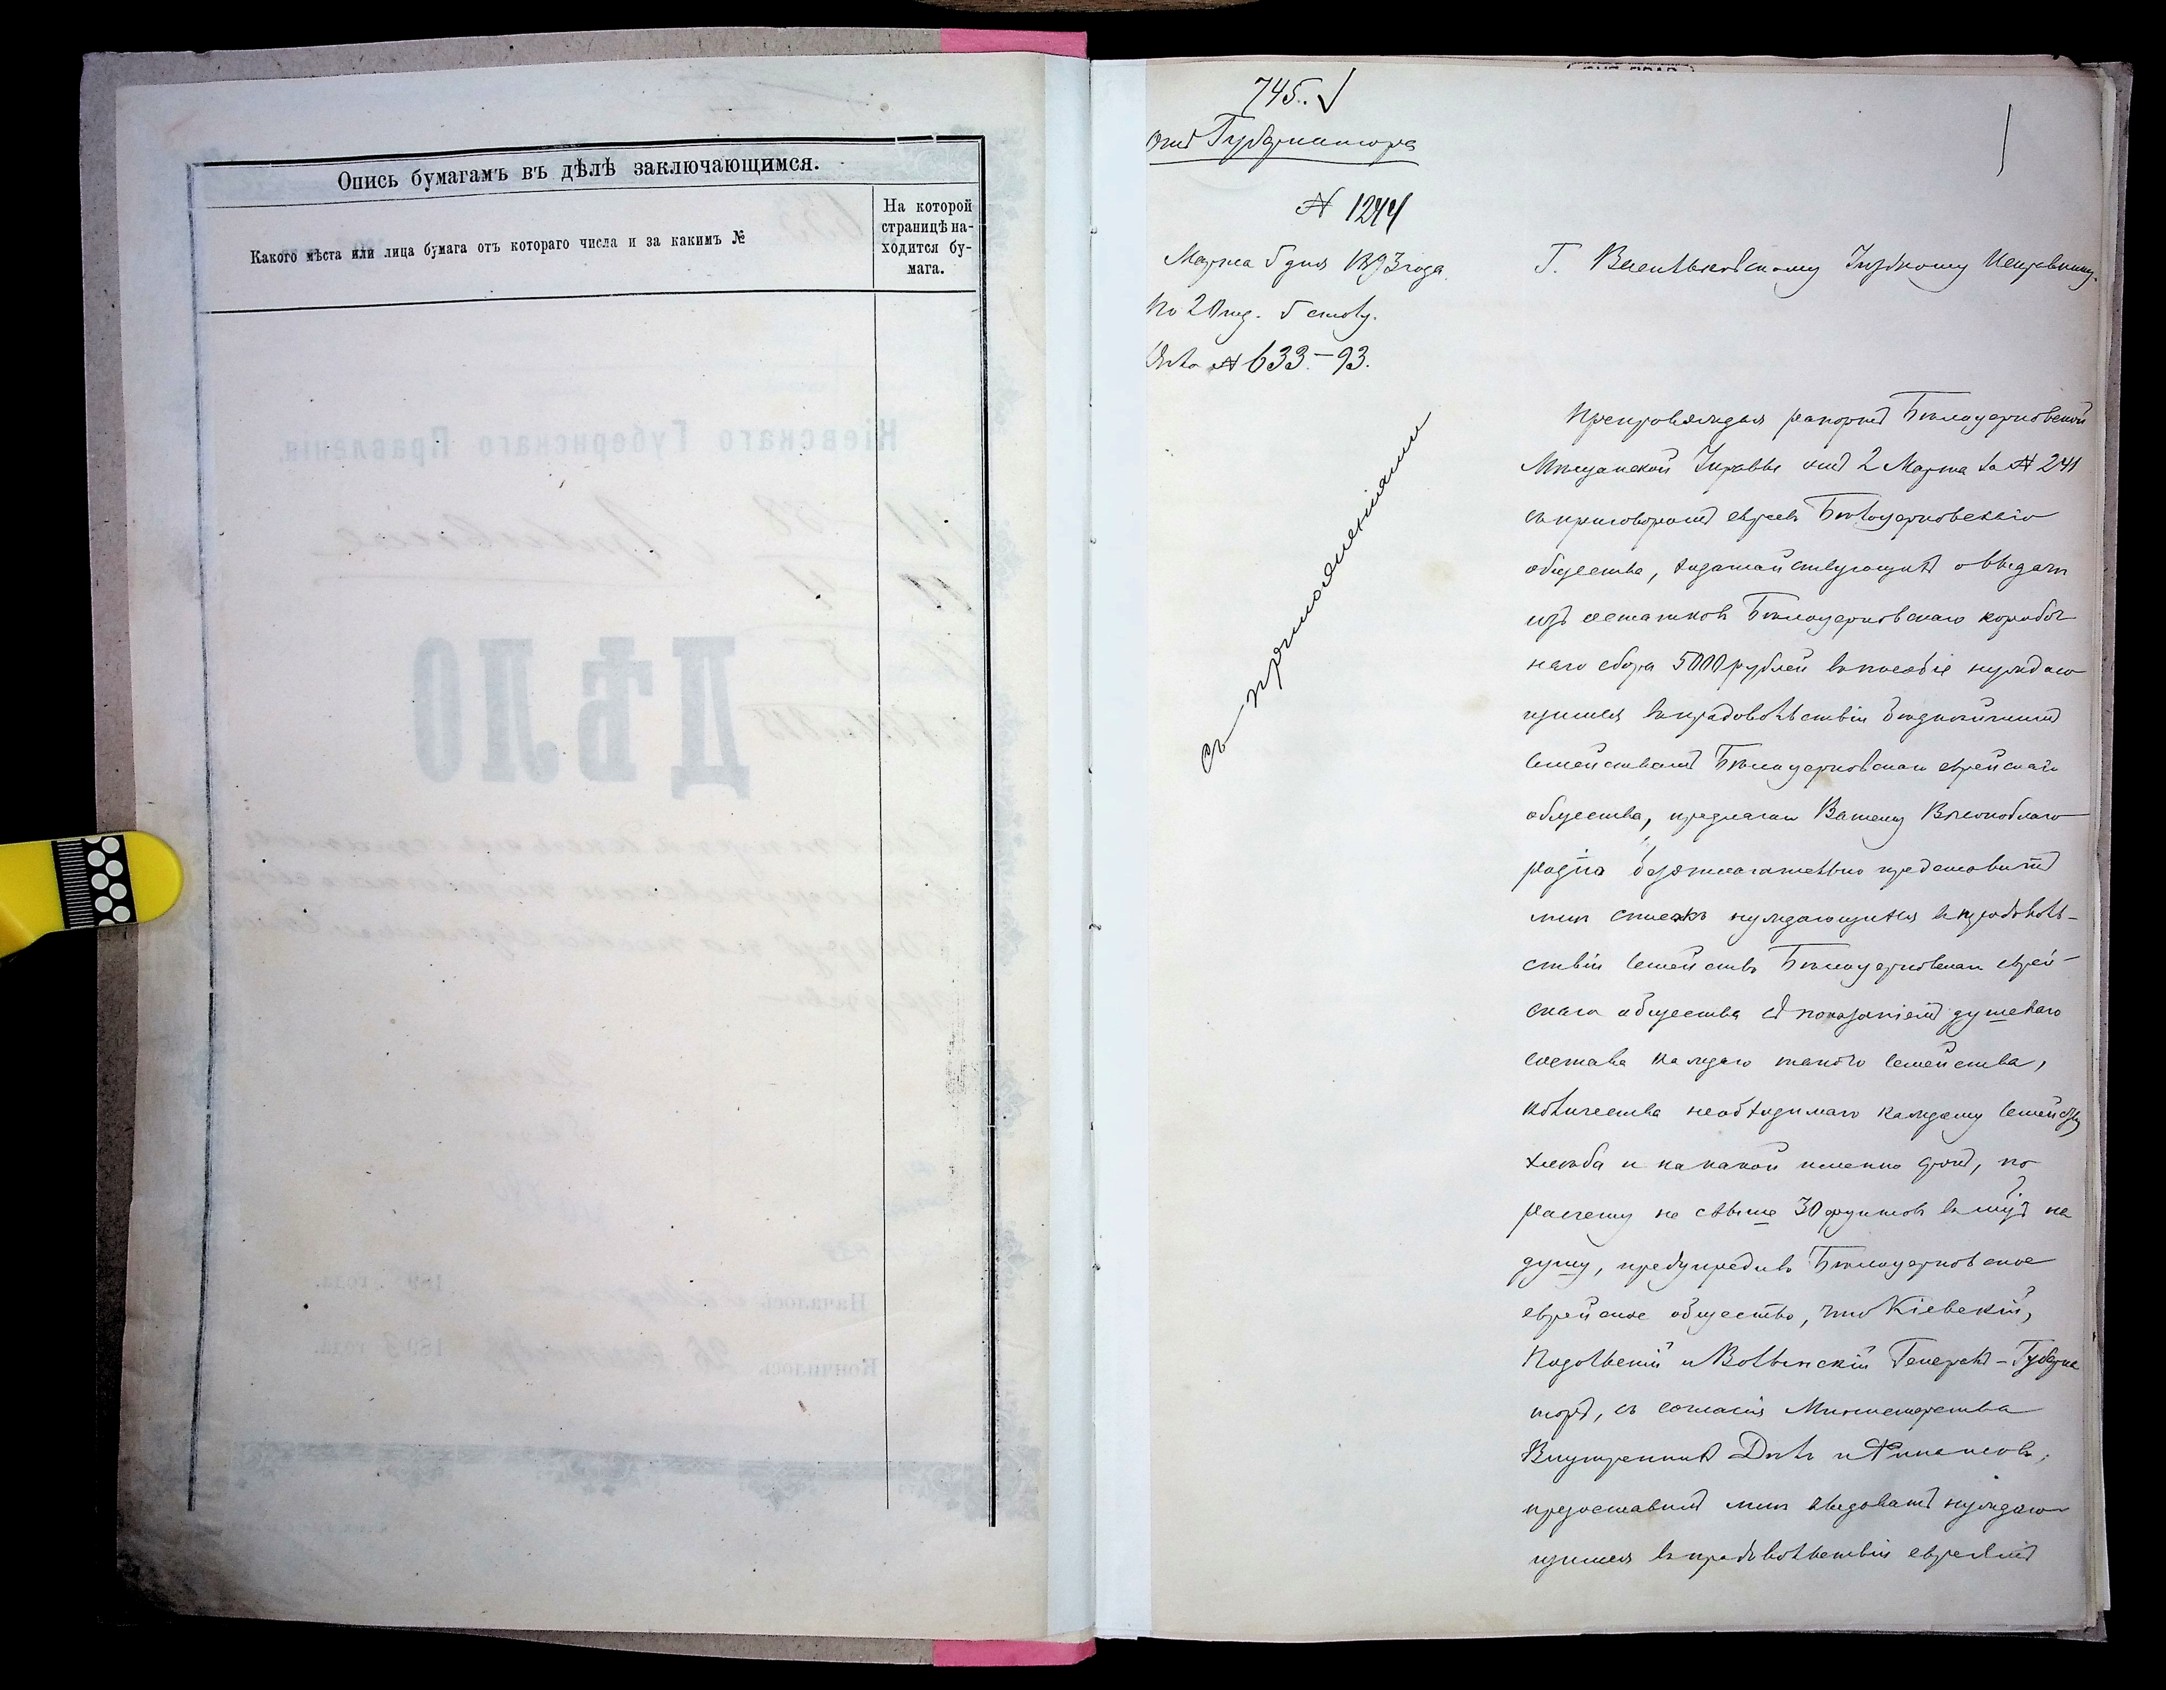 Опись бумагамъ въ дѣлѣ заключающимся.
Какого мѣста или лица бумага отъ котораго числа и за какимъ №
На которой
страницѣ на-
ходится бу-
мага.
745.
Отъ Губернатора
№ 1244
Марта 5 дня 1893 года.
По 2 Отд. 5 столу.
Дѣло № 633-93.
съ приложеніями
Г. Васильковскому Уѣздному Исправнику.
Препровождая рапортъ Бѣлоцерковской
Мѣщанской Управы отъ 2 Марта за № 241
съ приговоромъ евреевъ Бѣлоцерковскаго
общества, ходатайствующихъ о выдачѣ
изъ остатковъ Бѣлоцерковскаго коробоч
наго сбора 5000 рублей въ пособіе нуждаю
щимся въ продовольствіи бѣднѣйшимъ
семействамъ Бѣлоцерковскаго еврейскаго
общества, предлагаю Вашему Высокоблаго
родію безотлагательно представить
мнѣ списокъ нуждающихся въ продоволь-
ствіи семействъ Бѣлоцерковскаго еврей-
скаго общества съ показаніемъ душеваго
состава каждаго такого семейства,
количества необходимаго каждому семейству
хлѣба и на какой именно срокъ, по
расчету не свыше 30 фунтовъ въ мѣс. на
душу, предупредивъ Бѣлоцерковское
еврейское общество, что Кіевскій,
Подольскій и Волынскій Генералъ-Губерна
торъ, съ согласія Министерства
Внутреннихъ Дѣлъ и Финансовъ,
предоставилъ мнѣ выдавать нуждаю
щимся въ продовольствіи евреямъ